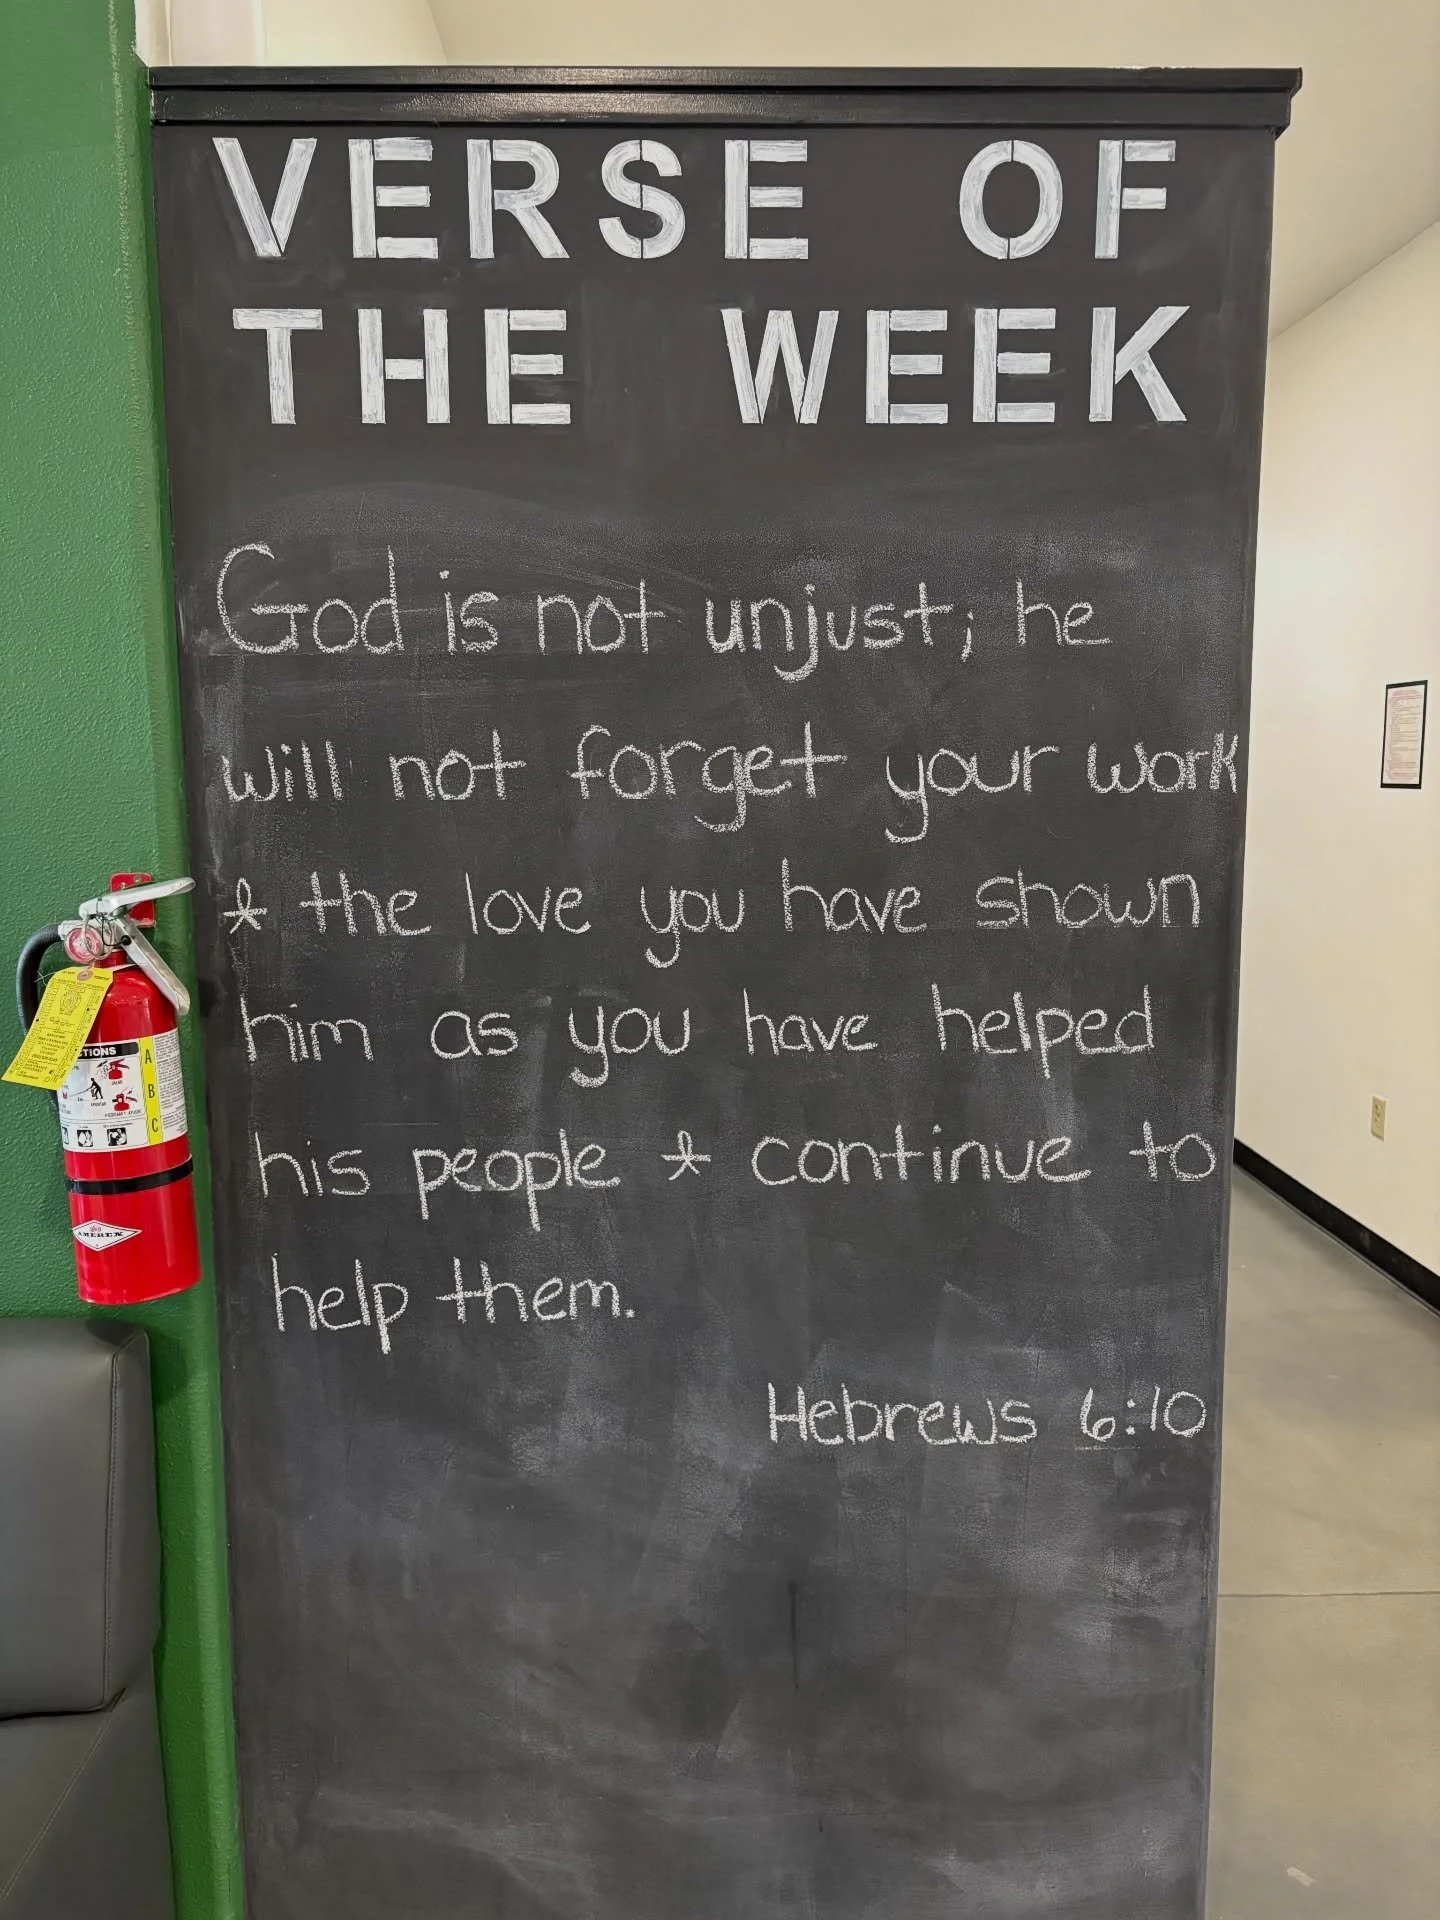 VERSE OF
THE WEEK
God is not unjust; he
will not forget your work
& the love you have shown
him as you have helped
his people & continue to
help them.
Hebrews 6:10
TIONS
A
B
C
AMEREX